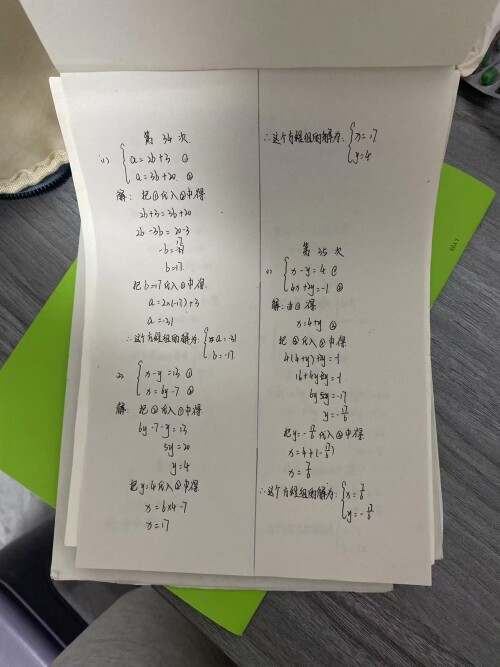 第34次
(1) { a=2b+3 ①
a=3b+20 ②
解: 把①代入②中得
2b+3=3b+20
2b-3b=20-3
-b=17
b=17
把b=17代入①中得
a=2×(-17)+3
a=-31
∴这个方程组的解为: { a=-31
b=-17
2) { x-y=13 ①
x=6y-7 ②
解: 把②代入①中得
6y-7-y=13
5y=20
y=4
把y=4代入②中得
x=6×4-7
x=17
∴这个方程组的解为: { x=17
y=4
第35次
{ x-y=4 ①
4x+2y=-1 ②
解: 由①得
x=4+y ③
把③代入②中得
4(4+y)+2y=-1
16+4y+2y=-1
6y=-17
y=-17/6
把y=-17/6代入③中得
x=4+(-17/6)
x=7/6
∴这个方程组的解为: { x=7/6
y=-17/6